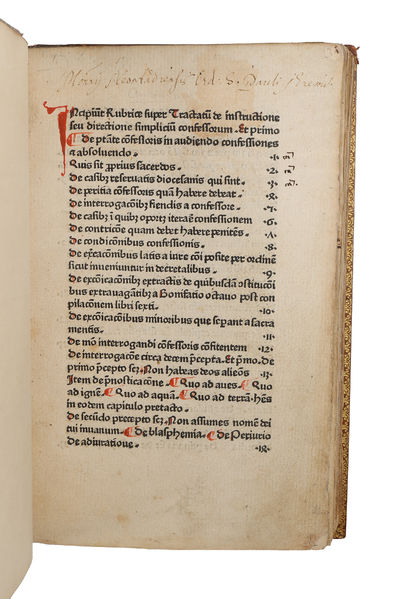 Incipiūt Rubrice super Tractatū de instructione
seu directione simpliciū confessorum. Et primo
De ptāte cōfessoris in audiendo confessiones
⁊ absoluendo. .1.
Quis sit ꝓprius sacerdos. .2.
De casibꝰ reseruatis diocesanis qui sint. .3.
De peritia cōfessoris quā habere debeat. .6.
De interrogacōibꝫ fiendis a confessore. .7.
De casibꝫ ī quibꝫ oportꝫ iteraē confessionem .6.
De contricōe quam debet habere penitēs. .Λ.
De condicōnibus confessionis. .8.
De excōicacōnibus latis a iure cōi posite per ordinē
sicut inueniuntur in decretalibus. .9.
De excōicacōnibꝫ extractis de quibusdā ostitucōi
bus extrauagātibꝫ a Bonifatio octauo post con
pilacōnem libri sexti. .10.
De excōicacōnibus minoribus que sepant a sacra
mentis. .11.
De mō interrogandi confessoris cōfitentem .12.
De interrogacōe circa decem pcepta. Et pmo. de
primo pcepto scꝫ. Non habeas deos aliēos .13.
Item de pnostica cōne. Quo ad aues. Quo
ad ignē. Quo ad aquā. Quo ad terrā. hēs
in eodem capitulo pretacto.
De secūdo precepto scꝫ. Non assumes nomē dei
tui inuanum. De blasphemia. De Periurio
de adiuratione. .18.